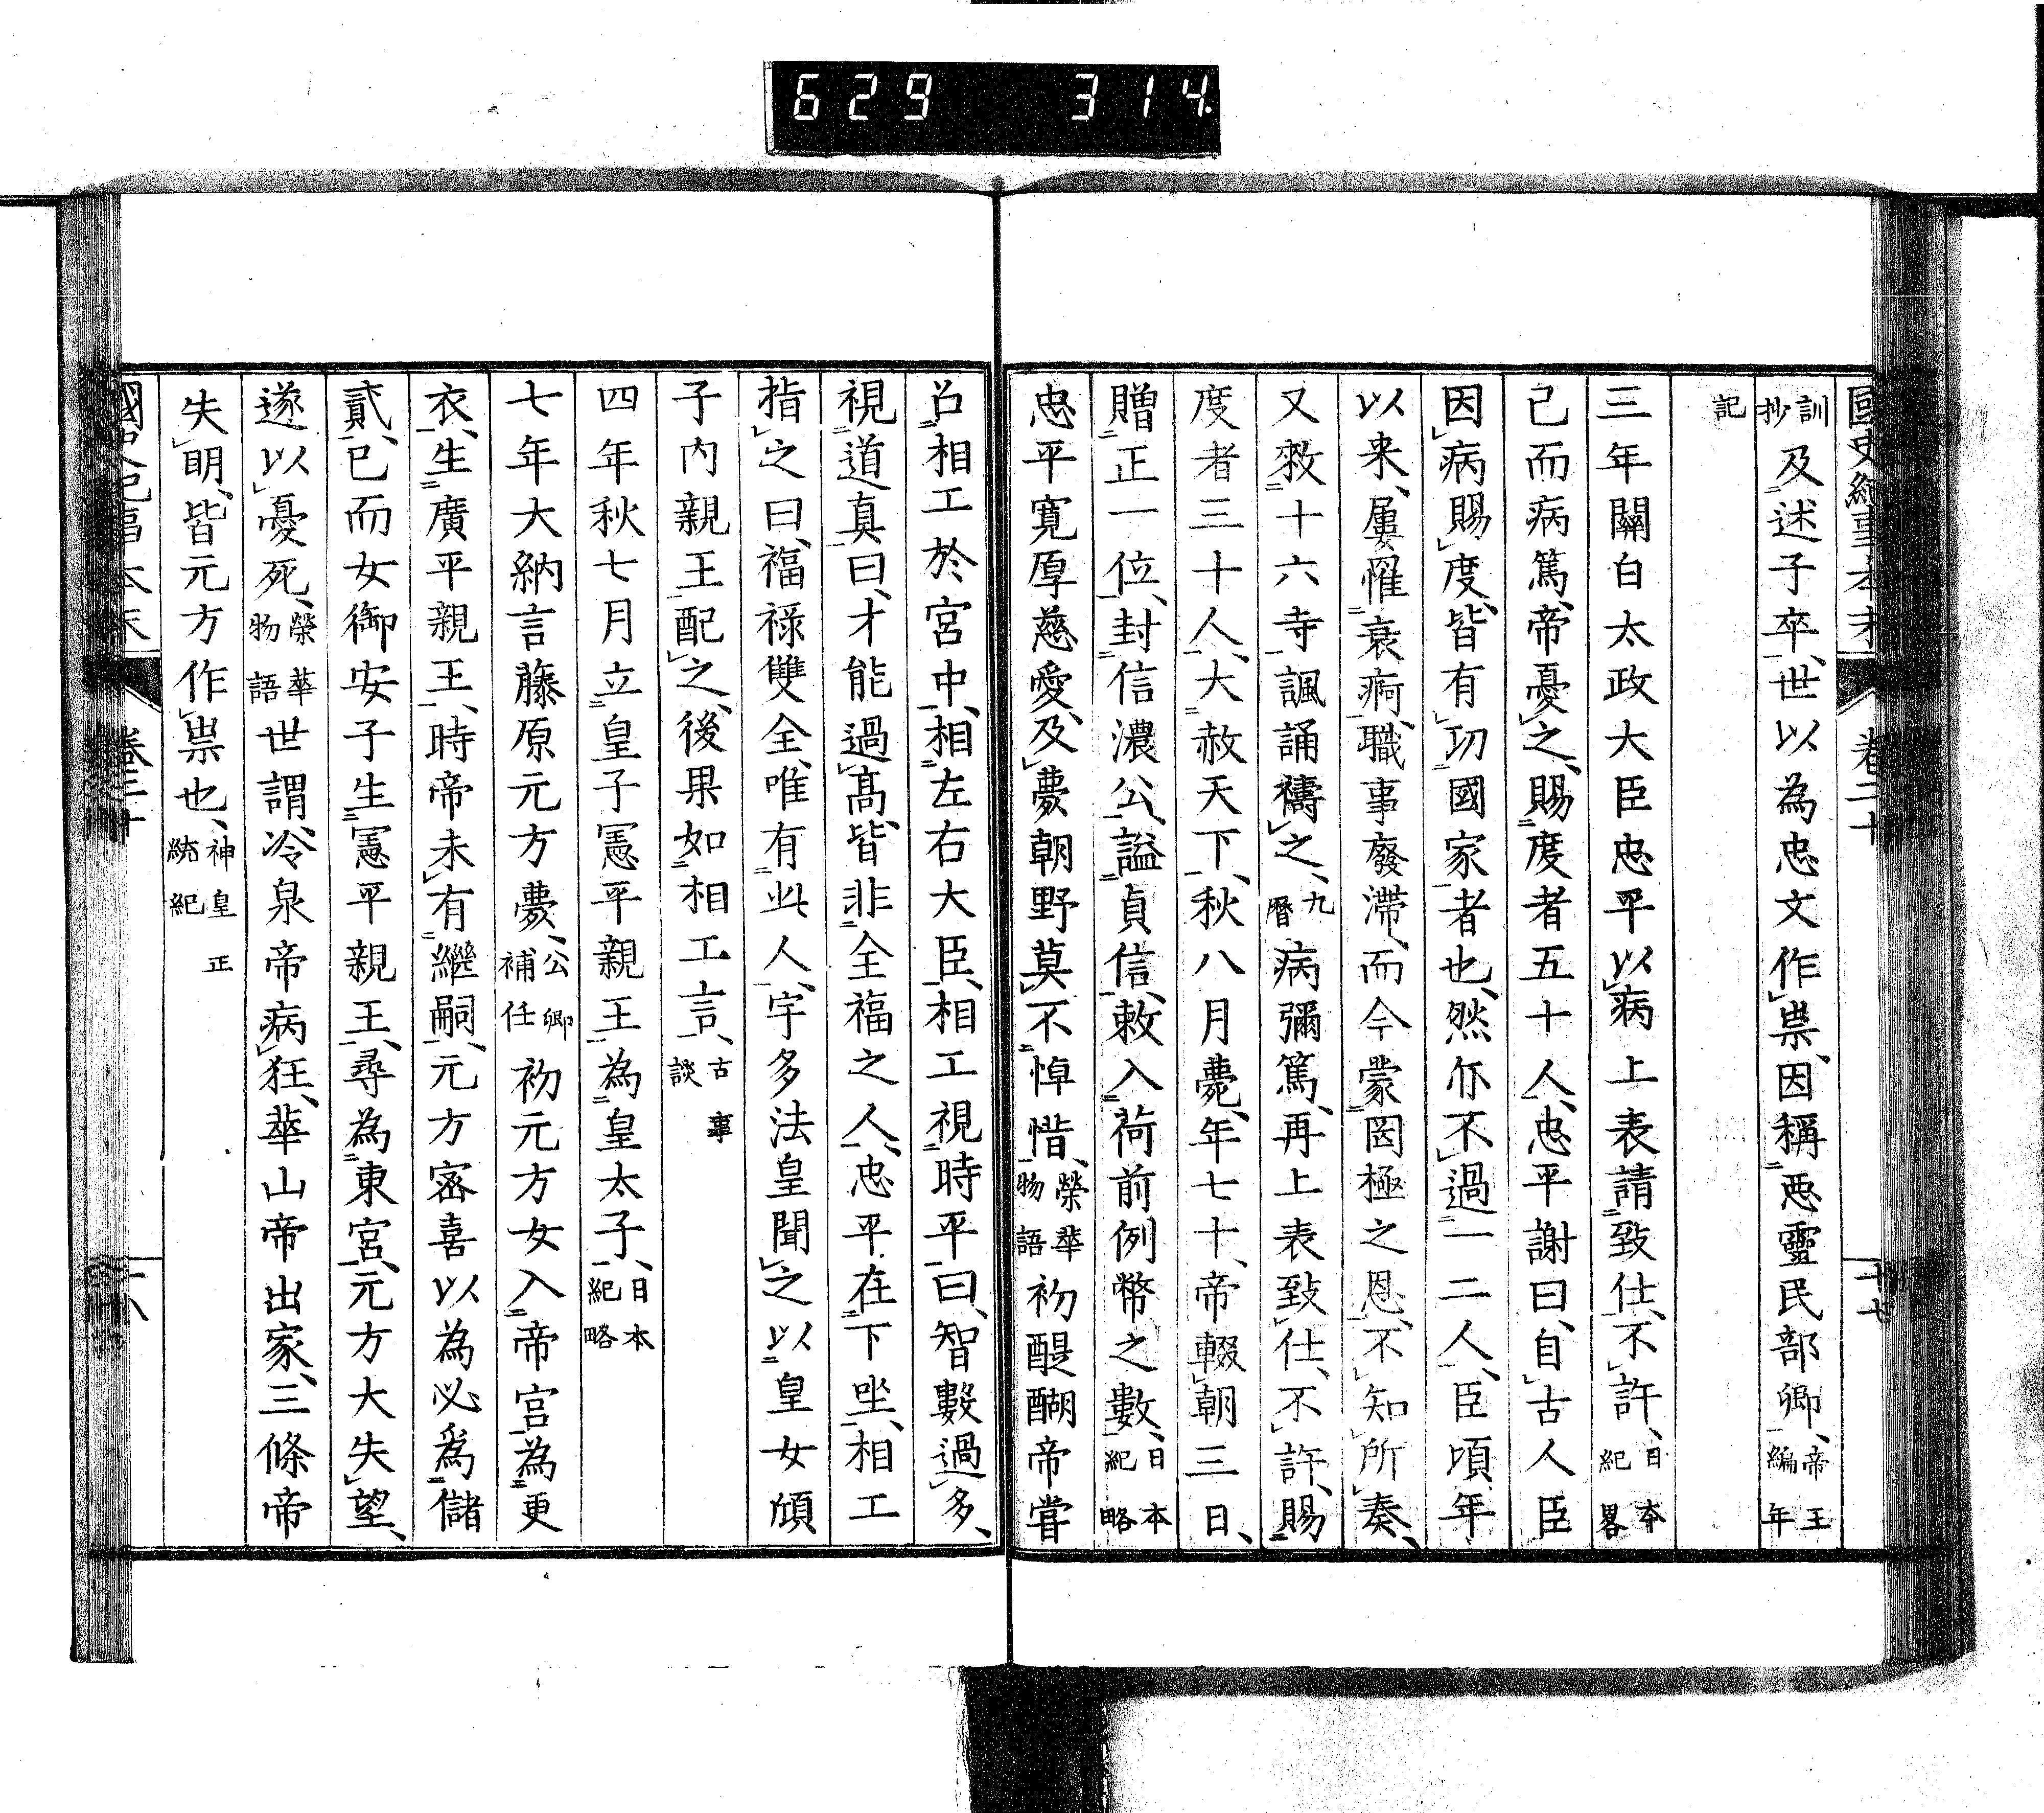 629 314
國史紀事本末 卷二十 十七
訓抄及述子卒、世以為忠文作祟、因稱惡靈民部卿、帝王編年
記
三年關白太政大臣忠平以病上表請致仕、不許、日本紀畧
已而病篤、帝憂之、賜度者五十人、忠平謝曰、自古人臣
因病賜度、皆有功國家者也、然尓不過一二人、臣頃年
以来、屢罹衰痾、職事廢滯、而今蒙罔極之恩、不知所奏、
又敕十六寺諷誦禱之、九曆病彌篤、再上表致仕、不許、賜
度者三十人、大赦天下、秋八月薨、年七十、帝輟朝三日、
贈正一位、封信濃公、謚貞信、敕入荷前例幣之數、日本紀略
忠平寬厚慈愛、及薨朝野莫不悼惜、榮華物語初醍醐帝嘗
召相工於宮中、相左右大臣、相工視時平曰、智數過多、
視道真曰、才能過高、皆非全福之人、忠平在下坐、相工
指之曰、福祿雙全、唯有此人、宇多法皇聞之以皇女頎
子內親王配之、後果如相工言、古事談
四年秋七月立皇子憲平親王為皇太子、日本紀略
七年大納言藤原元方薨、公卿補任初元方女入帝宮為更
衣、生廣平親王、時帝未有繼嗣、元方密喜以為必爲儲
貳、已而女御安子生憲平親王、尋為東宮、元方大失望、
遂以憂死、榮華物語世謂、冷泉帝病狂、華山帝出家、三條帝
失明、皆元方作祟也、神皇正統紀
國史紀事本末 卷二十 十八